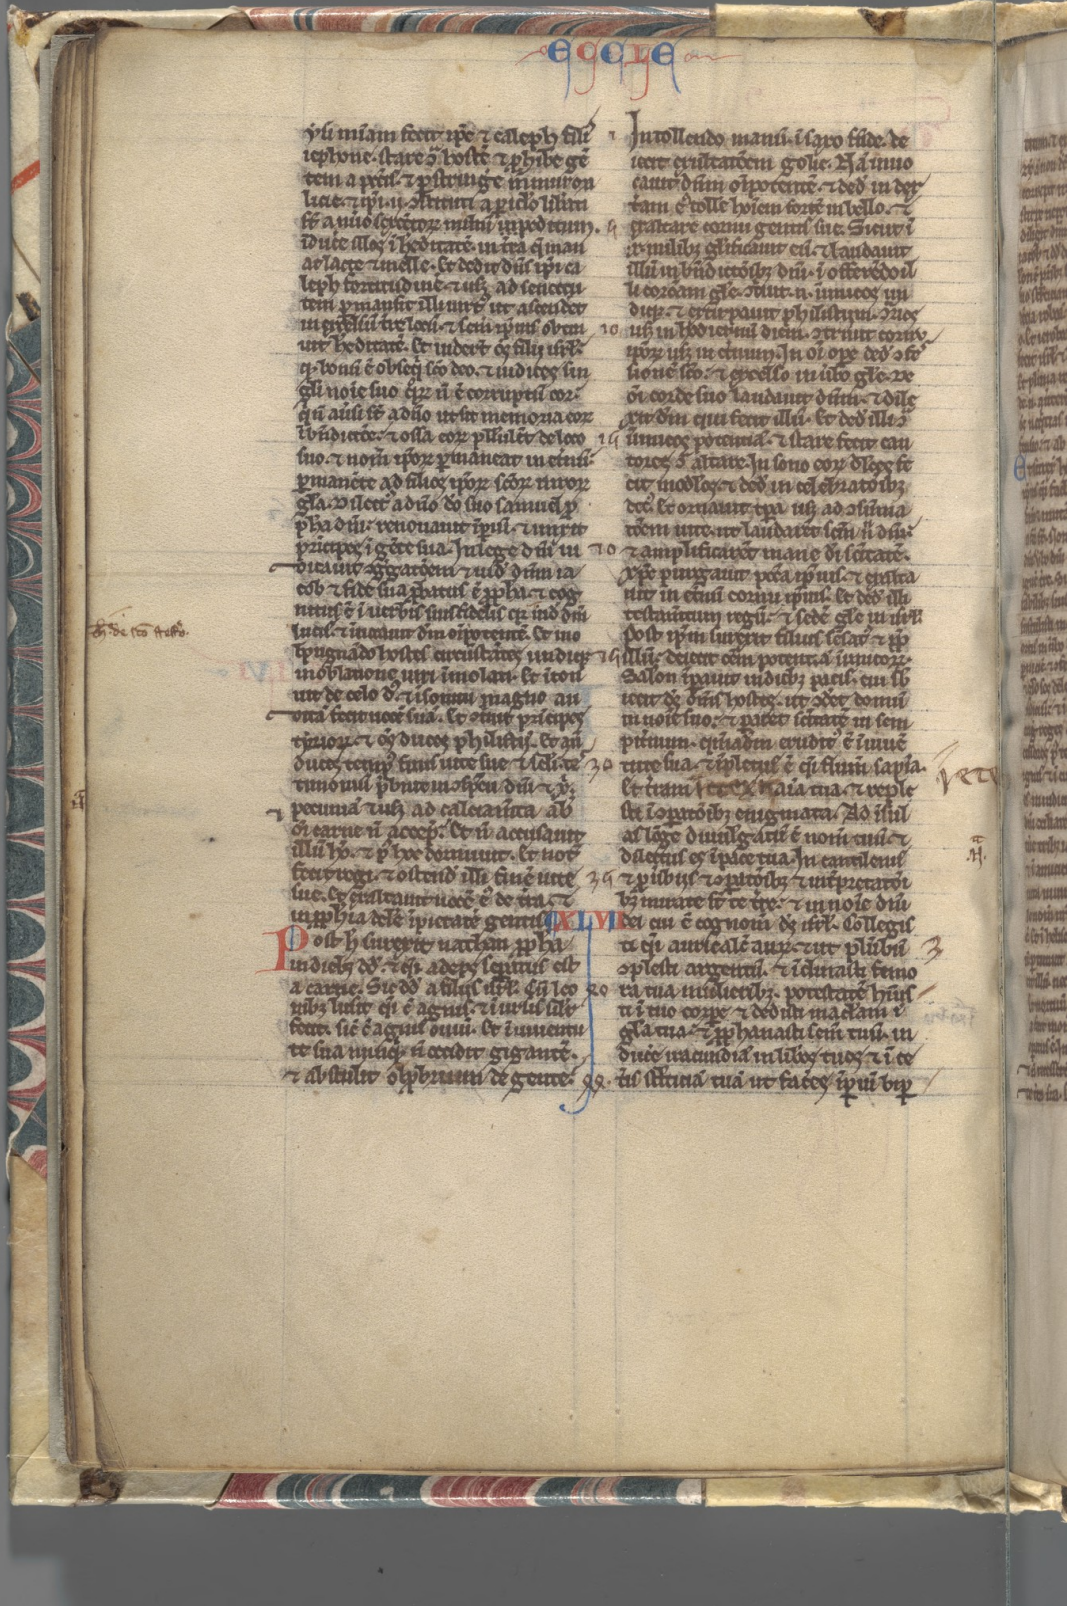 ECCLE
ysi mīam fecit ip̄e ⁊ caleph filiꝰ
iephone. stare ꝯ̄ hostē ⁊ ꝓhibe gē
tem a pecc̄is. ⁊ ꝑstringe m̄murōn
licie. ⁊ ip̄i. ii. ꝯstituti a ꝑiclo liƀati
st̄ a nūo sexcētoꝝ miliū
īducē illos ī heditatē. in t̄ra q̄ man
at lacte ⁊ melle. Et dedit dn̄s ip̄i ca
leph fortitudinē. ⁊ usꝫ ad senectu
tem ꝑmansit illi uirtꝰ. ut ascendet
in excelsū t̄re locū. ⁊ semē ip̄ius obtin
uit heditatē. Et uideret oēs filii isrł.
q̄ bonū ē obseq̄ sc̄o deo. ⁊ iudices sin
guli noīe suo quoꝝ n̄ ē corruptū cor.
qui n̄ auersi st̄ a dn̄o ut sit memoria eoꝝ
ī bn̄dictōe. ⁊ ossa eoꝝ pullulēt de loco
suo. ⁊ nom̄ ip̄oꝝ ꝑmaneat in et̄nū.
ꝑmanēte ad filios ip̄oꝝ sc̄oꝝ uiroꝝ
gła. Dilectꝰ a dn̄o dō suo samuel ꝓ
ph̄a dn̄i. renouauit īꝑiū. ⁊ unxit
principes ī gēte sua. In lege dn̄i iu
dicauit ꝯggatōem ⁊ uid̄ dn̄s ia
cob ⁊ ī fide sua ꝓbatus ē ꝓph̄a. ⁊ cog
nitus ē ī uerbis suis fidelis q̄a uid̄ dm̄
lucis. ⁊ īuocauit dm̄ oīpotentē. Et ī ō
pugnādo hostes circūstātes undiqꝫ
in oblatione uiri īmolati. Et īton
uit de celo dn̄s. ⁊ ī sonitu magno au
ditā fecit uocē suā. Et ꝯtriuit principes
tyrioꝝ. ⁊ oēs duces philistīj. Et an̄
tempꝰ finis uite sue ⁊ sc̄li. tes
timoniū p̄buit in ꝯspectu dn̄i ⁊ xp̄i.
pecuniā ⁊ usꝫ ad calciam̄ta ab
oī carne n̄ accepit. Et n̄ accusauit
illū hō. ⁊ pꝰ hoc dormiuit. Et notū
fecit regi. ⁊ ostendit illi finē uite
sue. Et exaltauit uocē ei de t̄ra. ⁊
in ꝓph̄ia dele īpietatē gentis. XLVII
Post h̄ surrexit nathan ꝓph̄a
in diebꝫ dd̄. ⁊ q̄si adeps seꝑatus est
a carne. Sic dd̄ a filiis isrł. Cū leo
nibꝫ lusit q̄si ē agnis. ⁊ ī ursis silr̄
fecit. sic̄ ē agnis ouiū. Et ī iuuentu
te sua nūq̄d. n̄ occidit gigantē.
⁊ abstulit obꝓbrium de gente.
In tollendo manū. ī saxo funde. de
iecit exultatōem golie. Nā inuo
cauit dn̄m oīpotentē. ⁊ dedit in dex
t̄am ei tolle hoīem fortē in bello. ⁊
exaltare cornu gentis sue. Sicut ī
x. milibꝫ glificauit eū. ⁊ laudauit
illū in bn̄dictōibꝫ dn̄i. ī offerēdo il
li coronam gle. ꝯtriuit. n. inimicos un
diqꝫ. ⁊ extirpauit philistīm. ꝯrios
usꝫ in hodiernū diem. ꝯtriuit cornu
ip̄oꝝ usꝫ in et̄num. In oī ope dedit ꝯfes
sionē sc̄o. ⁊ excelso in ūbo gle. De
oī corde suo laudauit dn̄m. ⁊ dile
xit dm̄ qui fecit illū. Et dedit illi ꝯ̄
inimicos potentiā. ⁊ stare fecit can
tores ꝯ̄ altare. In sono eoꝝ dulces fe
cit modos. ⁊ dedit in celebratōibꝫ
decꝰ. Et ornauit tp̄a usꝫ ad ꝯsūma
tōem uite. ut laudarēt sc̄m n̄ dn̄i.
⁊ amplificarēt mane dī sc̄itatē.
Xp̄c purgauit pecc̄a ip̄ius. ⁊ exalta
uit in et̄nū cornu ip̄ius. Et dedit illi
testam̄tum regni. ⁊ sedē gle in isrł.
Post ip̄m surrexit filius sensatꝰ. ⁊ ꝓp̄
illū. deiecit oēm potentiā inimicoꝝ.
Salon īꝑauit in diebꝫ pacis. cui sb̄
iecit dꝰ om̄s hostes. ut ꝯdet domū
in noīe suo. ⁊ paret sc̄itatē in sem
pit̄num. quēadm̄ eruditꝰ ē ī iuuē
tute sua. ⁊ īpletus ē q̄si flum̄ sapīa.
Et t̄ram retexit aīa tua. ⁊ reple
sti ī ꝯparatōibꝫ enigmata. Ad īsul
as lōge diuulgatū ē nom̄ tuū. ⁊
dilectus es ī pace tua. In cantilenis
⁊ ꝓūbiis ⁊ ꝯparatōibꝫ ⁊ int̄pretatōi
bꝫ mirate st̄ te t̄re. ⁊ in noīe dn̄i
dei cui ē cognom̄ dꝰ isrł. Collegis
ti q̄si auricalcū aurū. ⁊ ut plūbū
ꝯplesti argentū. ⁊ īclinasti femo
ra tua mulieribꝫ. potestatē habuis
ti ī tuo corpe. ⁊ dedisti maclam ī
gła tua. ⁊ ꝓphanasti semē tuū. in
ducē iracundiā in libos tuos. ⁊ ī ce
t̄is stulticiā tuā ut faceres īꝑiū bip̄
5
10
15
20
25
30
35
3
rete